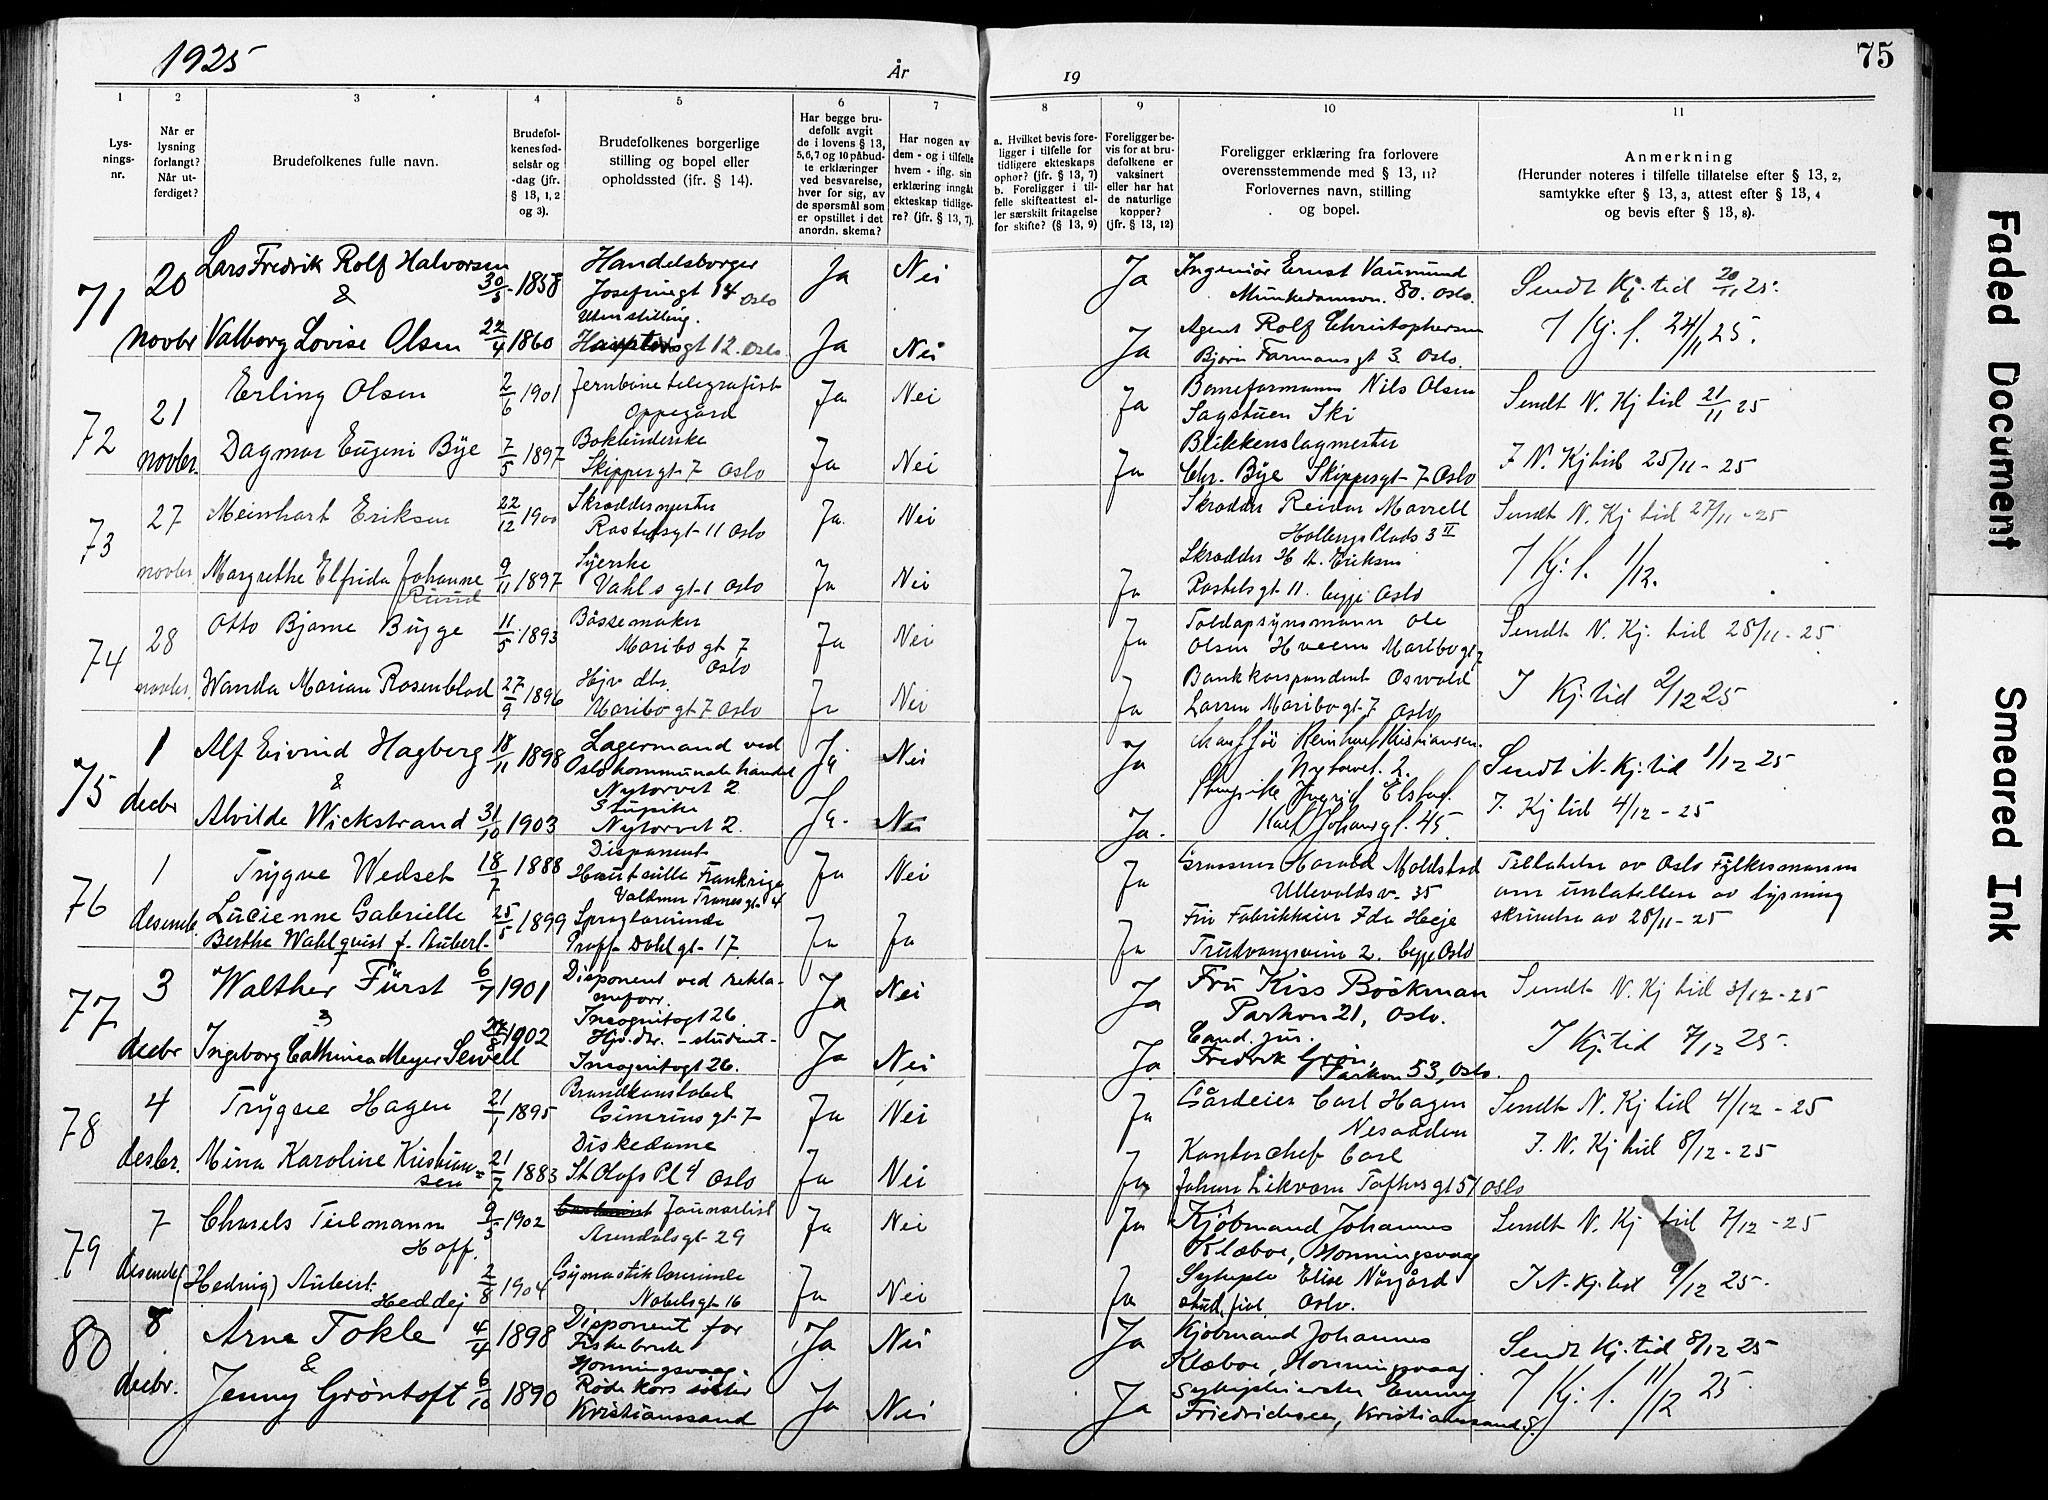 1925
År
19
75
1
2
3
4
5
6
7
8
9
10
11
Lys-
nings-
nr.
Når er
lysning
forlangt?
Når ut-
ferdiget?
Brudefolkenes fulle navn.
Brudefol-
kenes fød-
selsår og
-dag (jfr.
§ 13, 1, 2
og 3).
Brudefolkenes borgerlige
stilling og bopel eller
opholdssted (ifr. § 14).
Har begge bru-
defolk avgit
de i lovens § 13,
5, 6, 7 og 10 påbud-
te erklæringer
ved besvarelse,
hver for sig, av
de spørsmål som
er opstillet i det
anordn. skema?
Har nogen av
dem - og i tilfelle
hvem - iflg. sin
erklæring inngått
ekteskap tidlige-
re? (jfr. § 13, 7).
a. Hvilket bevis fore-
ligger i tilfelle for
tidligere ekteskaps
ophør? (jfr. § 13, 7)
b. Foreligger i til-
felle skifteattest el-
ler særskilt fritagelse
for skifte? (§ 13, 9)
Foreligger be-
vis for at bru-
defolkene er
vaksinert
eller har hat
de naturlige
kopper?
(jfr. § 13, 12)
Foreligger erklæring fra forlovere
overensstemmende med § 13, 11?
Forlovernes navn, stilling
og bopel.
Anmerkning
(Herunder noteres i tilfelle tillatelse efter § 13, 2,
samtykke efter § 13, 3, attest efter § 13, 4
og bevis efter § 13, 8).
71
20
novbr
Lars Fredrik Rolf Halvorsen
&
30/5 1858
Handelsborger
Josefinegt 14 Oslo
Ja
Nei
Ja
Ingeniør Ernst Vaumund
Munkedamsv. 80. Oslo.
Sendt Kj. tid 20/11 25.
Valborg Lovise Olsen
22/4 1860
Uten stilling.
gt 12. Oslo
Ja
Nei
Ja
Agent Rolf Christophersen
Bjørn Farmansgt 3. Oslo.
I Kj. t. 24/11 25.
72
21
novbr.
Erling Olsen
2/6 1901
Jernbanetelegrafist
Oppegård
Ja
Nei
Ja
Baneformann Nils Olsen
Sagstuen Ski
Sendt N. Kj tid 21/11 25
Dagmar Eugeni Bye
7/5 1897
Bokbinderske
Skippergt 7 Oslo
Ja
Nei
Ja
Blikkenslagmester
Chr. Bye Skippergt 7 Oslo
I N. Kj tid 25/11 - 25
73
27
novbr.
Meinhart Eriksen
22/12 1900
Skreddermester
gt 11 Oslo
Ja
Nei
Skrædder Reidar
Holbergs Plads 3 II
Sendt N. Kj tid 27/11 - 25
Margrethe Elfrida Johanne
Ruud
9/11 1897
Syerske
Vahls gt 1 Oslo
Ja
Nei
Ja
Skrædder H. A. Eriksen
gt 11. begge Oslo
I Kj. t. 1/12.
74
28
novbr.
Otto Bjarne Bugge
11/5 1893
Bössemaker
Maribogt 7
Oslo
Ja
Nei
Ja
Toldopsynsmann Ole
Olsen Hveem Maribogt 7
Sendt N. Kj. tid 28/11 - 25
Wanda Marian Rosenblad
27/9 1896
Hjv dtr.
Maribogt 7 Oslo
Ja
Nei
Ja
Bankkorspondent Oswald
Larsen Maribogt 7 Oslo
I Kj. tid 2/12 25
75
1
decbr
Alf Eivind Hagberg
&
18/11 1898
Lagermand ved
Oslo kommunale handel
Nytorvet 2
Ja
Nei
Ja
Chauffør Reinhart Kristiansen.
Nytorvet. 2.
Sendt N. Kj. tid 1/12 25
Alvilde Wickstrand
31/10 1903
Stupike
Nytorvet 2.
Ja.
Nei
Ja.
Stuepike Ingrid Elstad.
Karl Johansgt. 45.
I. Kj tid 4/12 - 25
76
1
desembr.
Trygve Wedset
18/7 1888
Disponent
Frankrige
Valdemar Tranesgt 4
Ja
Nei
Ja
Grosserer Harald Moldstad
Ullevoldsv. 35
Tillatelse av Oslo Fylkesmann
om unlatellse av lysning
skrivelse av 28/11 - 25
Lucienne Gabrielle
Berthe Wahlquist f. Aubert
25/5 1899
Sproglærerinde
Proff Dahlgt 17.
Ja
Ja
Ja
Fru Fabrikkeier Ida Heije
Trudvangveien 2. begge Oslo
77
3
decbr
Walther Fürst
&
6/7 1901
Disponent ved rekla-
meforr.
Incognitogt 26
Ja
Nei
Ja
Fru Kiss Böckman
Parkvn 21, Oslo.
Sendt N. Kj tid 3/12 - 25
Ingeborg Cathinca Meyer Sewell
1902
Hjv. dtr. - student -
Incognitogt 26.
Ja
Nei
Ja
Cand. jur.
Fredrik Grøn,
Parkvn 53, Oslo.
I Kj. tid 7/12 25.
78
4
desbr.
Trygve Hagen
21/1 1895
Brandkonstabel
gt 7
Ja
Nei
Ja
Gårdeier Carl Hagen
Nesodden
Sendt N. Kj tid 4/12 - 25
Mina Karoline Kristian=
sen
21/7 1883
Diskedame
St Olafs Pl 4 Oslo
Ja
Nei
Ja
Kontorchef Carl
Johan Likvam Tofthusgt 51 Oslo
I. N. Kj tid 8/12 - 25
79
7
desembr
Charels Tielmann
Hoff.
9/3 1902
Journalist
Arendalsgt 29
Ja
Nei
Ja
Kjöbmand Johannes
Klæboe, Honningsvaag
Sendt N. Kj tid 7/12 - 25
(Hedvig) Aubert
Heddej
2/8 1904
Gymnastiklærerinde
Nobelsgt 16
Ja
Nei
Ja
Elise Nårgård
stud. fil Oslo.
I N. Kj. tid 9/12 25.
80
8
decbr.
Arne Tokle
&
4/4 1898
Disponent for
Fiskebruk
Honningsvaag.
Ja
Nei
Ja
Kjöbmand Johannes
Klæboe, Honningsvaag
Sendt Kj. tid 8/12 25
Jenny Gröntoft
6/10 1890
Röde kors söster
Kristianssand
Ja
Nei
Ja
Sykepleierske Emmy
Friedrichsen, Kristianssand S.
I Kj. t. 11/12 25
Faded Document
Smeared Ink